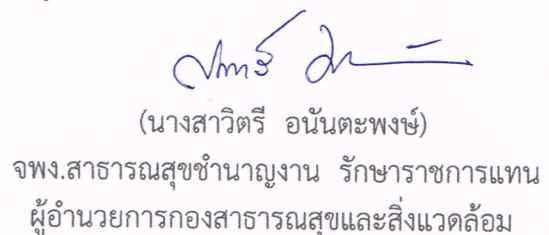 (นางสาวิตรี อนันตะพงษ์)
จพง.สาธารณสุขชำนาญงาน รักษาราชการแทน
ผู้อำนวยการกองสาธารณสุขและสิ่งแวดล้อม